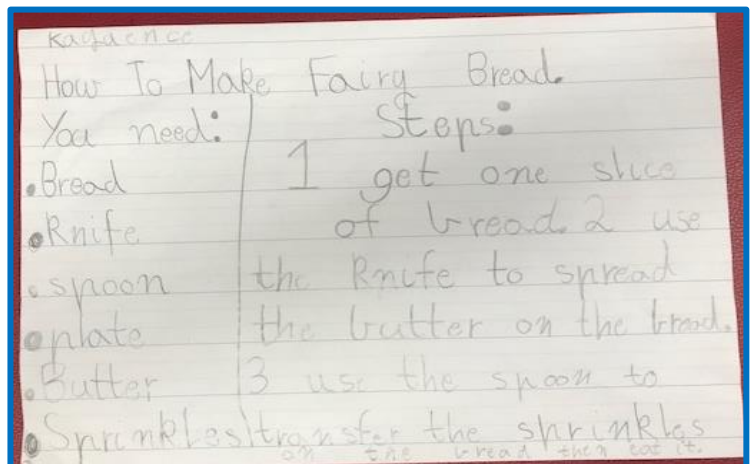 Kadaence
How To Make Fairy Bread.
You need:
• Bread
• Knife
• spoon
• plate
• Butter
• Sprinkles
Steps:
1 get one slice
of bread. 2 use
the knife to spread
the butter on the bread.
3 use the spoon to
transfer the shrinkles
on the bread then eat it.